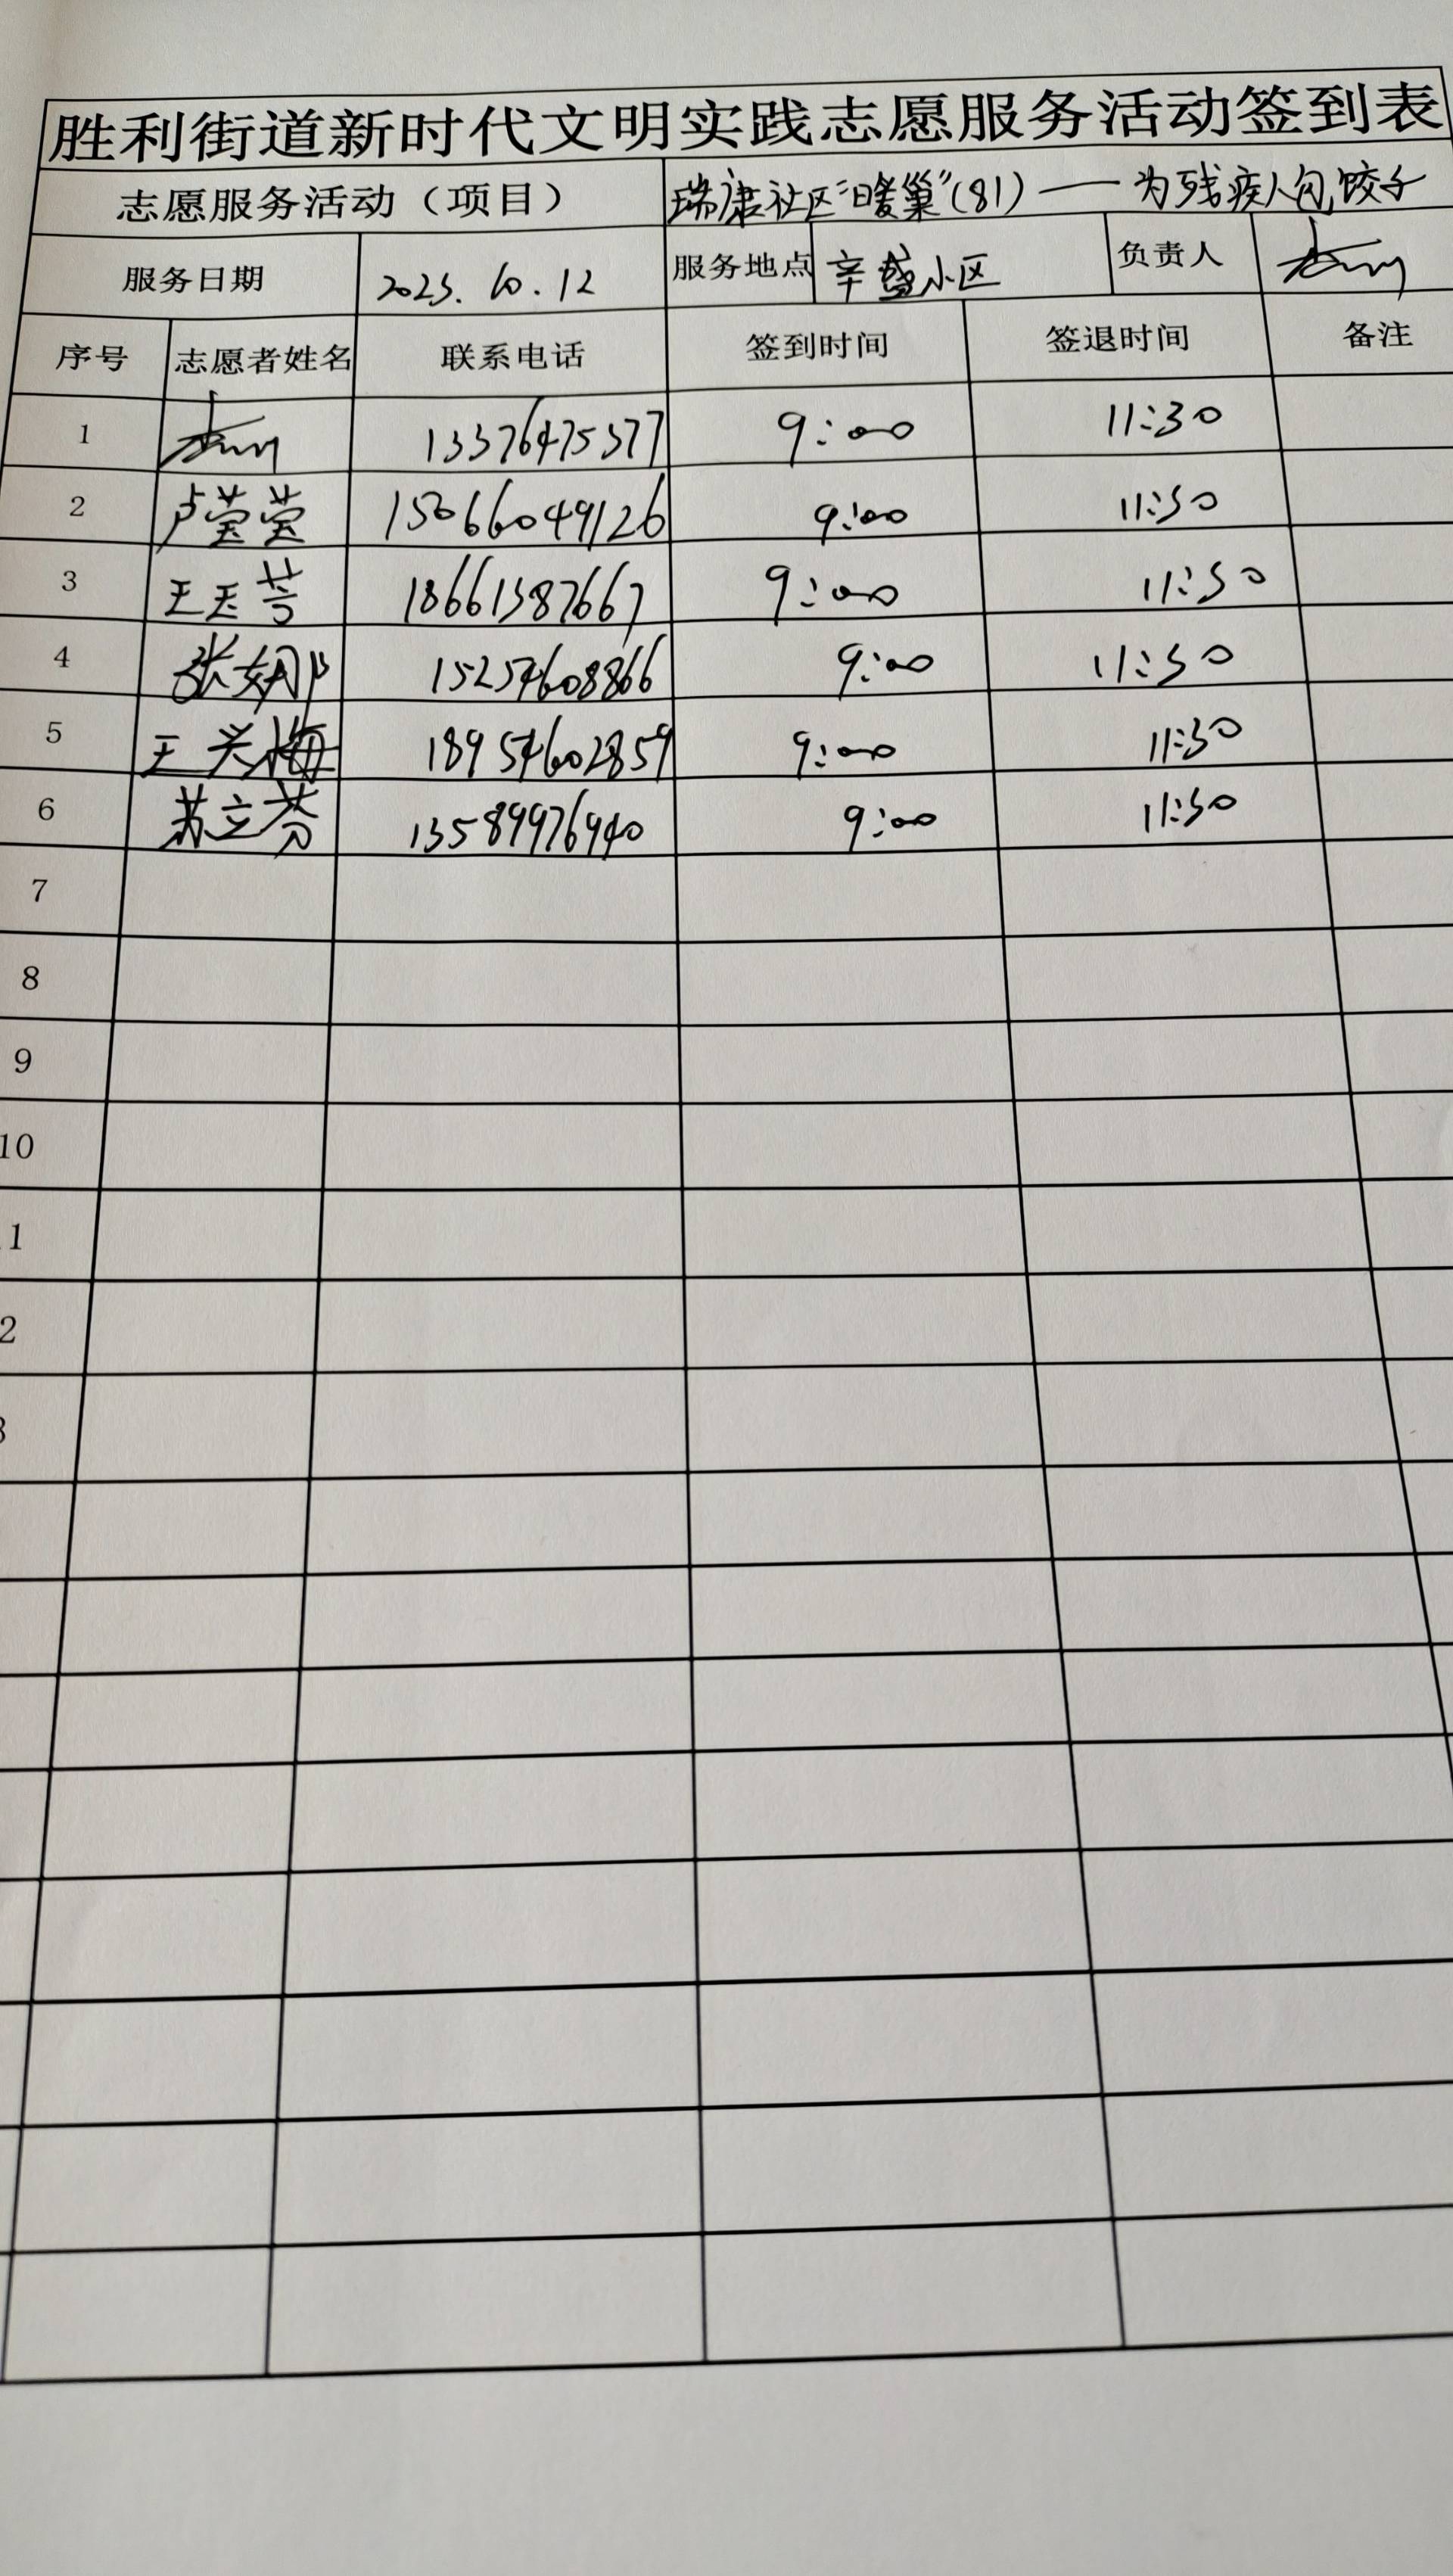 胜利街道新时代文明实践志愿服务活动签到表
志愿服务活动（项目） 瑞康社区“暖巢”(81)——为残疾人包饺子
服务日期 2025.10.12 服务地点 辛盛小区 负责人
序号 志愿者姓名 联系电话 签到时间 签退时间 备注
1 13376475377 9:00 11:30
2 卢莹莹 15066049126 9:00 11:30
3 王玉芳 18661387667 9:00 11:30
4 张娜 15254608866 9:00 11:30
5 王兴梅 18954602859 9:00 11:30
6 苏立芬 13589976940 9:00 11:30
7
8
9
10
1
2
3